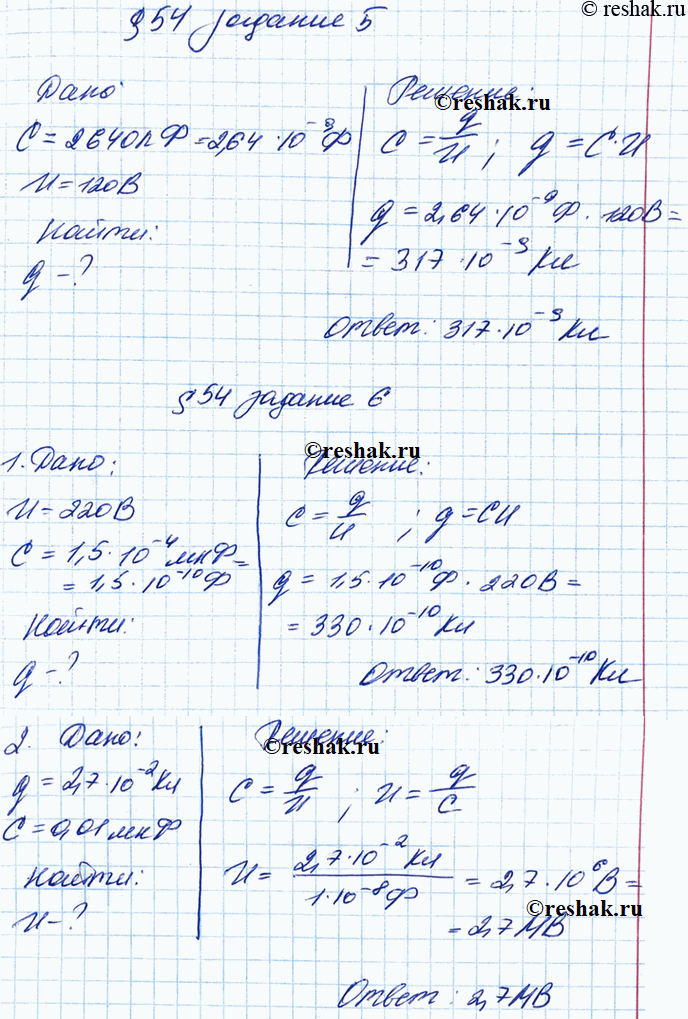 © reshak.ru
§54 задание 5
Дано
C = 2640пФ = 2,64 · 10⁻⁹Ф
U = 120В
Найти:
q - ?
Решение:
© reshak.ru
C = q/U ; q = C·U
q = 2,64 · 10⁻⁹Ф · 120В =
= 317 · 10⁻⁹ Кл
Ответ: 317 · 10⁻⁹ Кл
§54 задание 6
1. Дано:
U = 220В
C = 1,5 · 10⁻⁴ мкФ =
= 1,5 · 10⁻¹⁰Ф
Найти:
q - ?
© reshak.ru
Решение:
C = q/U ; q = CU
q = 1,5 · 10⁻¹⁰Ф · 220В =
= 330 · 10⁻¹⁰ Кл
Ответ: 330 · 10⁻¹⁰ Кл
2. Дано:
q = 2,7 · 10⁻² Кл
C = 0,01 мкФ
Найти:
U - ?
Решение:
© reshak.ru
C = q/U ; U = q/C
U = 2,7 · 10⁻² Кл / 1 · 10⁻⁸Ф = 2,7 · 10⁶ В =
© reshak.ru
= 2,7 МВ
Ответ: 2,7 МВ